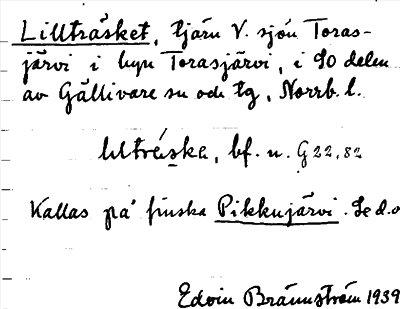 Lillträsket, tjärn V. sjön Toras-
järvi i byn Torasjärvi, i SO delen
av Gällivare sn och tg, Norrb. l.
lıltrę́ska, bf. n. G 22, 82
Kallas på finska Pikkujärvi. Se d.o
Edvin Brännström 1939